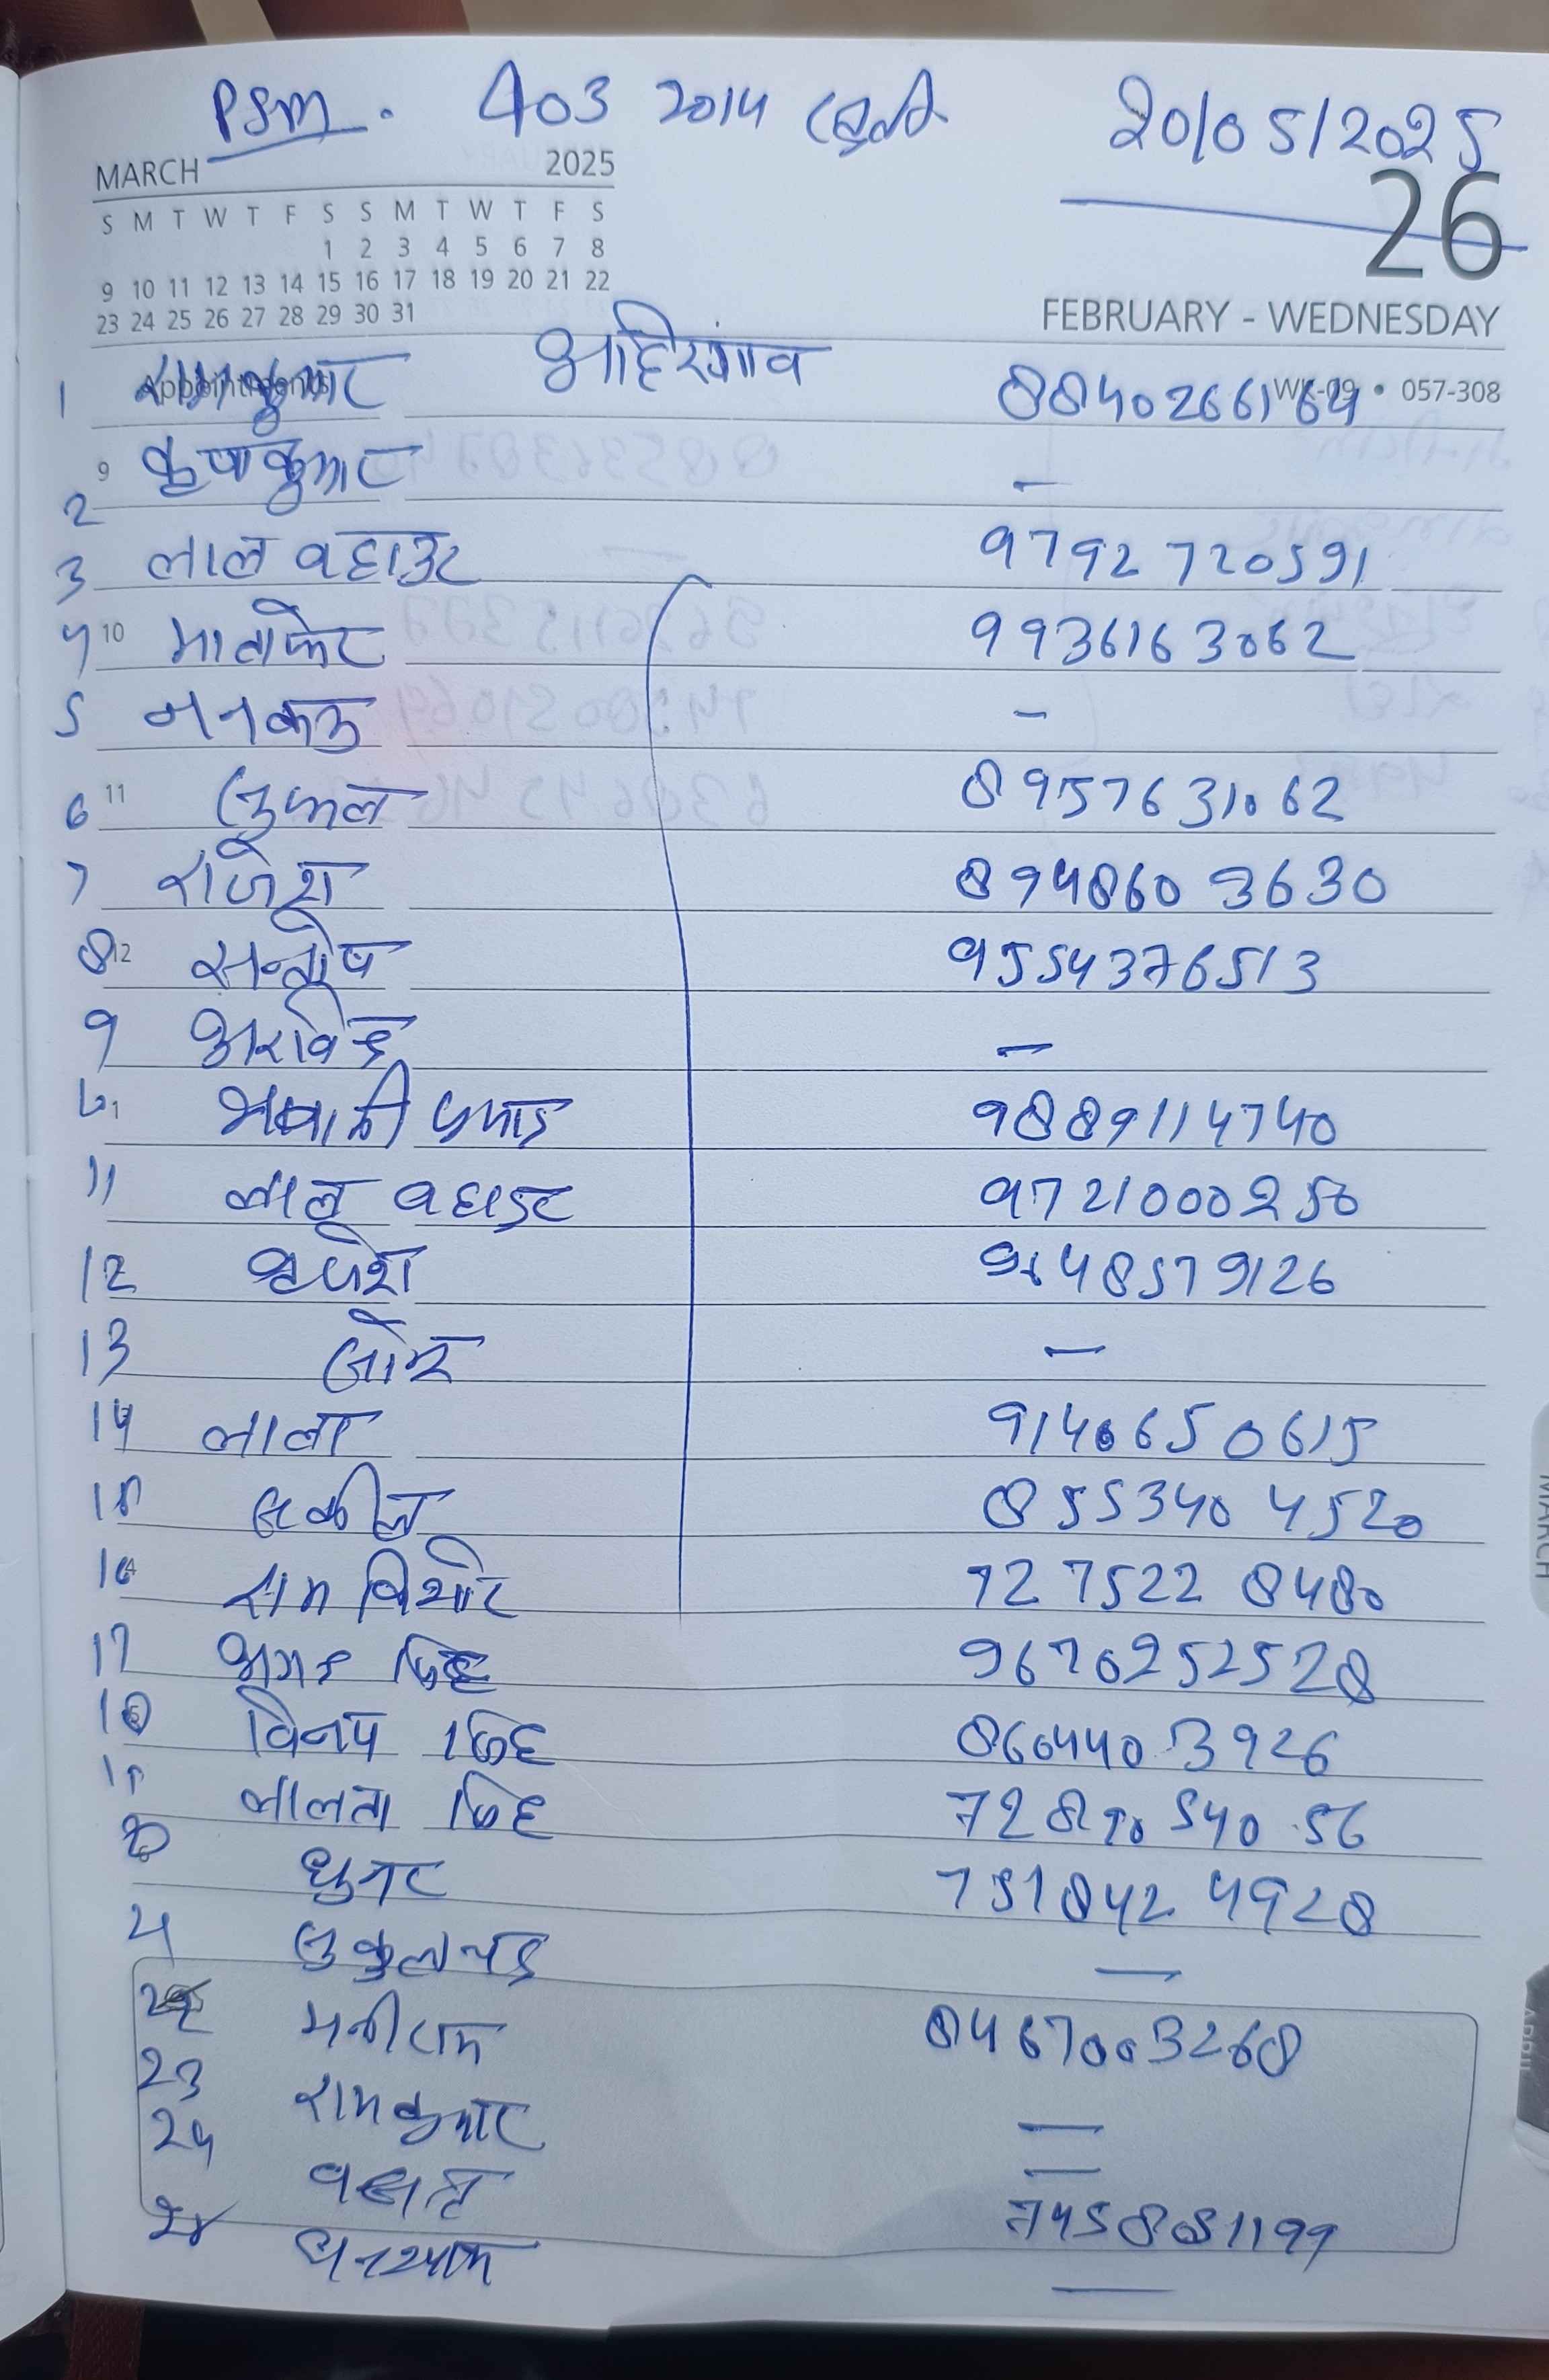 PSM. 403 2014 20/05/2025
MARCH 2025
S M T W T F S S M T W T F S
1 2 3 4 5 6 7 8
9 10 11 12 13 14 15 16 17 18 19 20 21 22
23 24 25 26 27 28 29 30 31
26
FEBRUARY - WEDNESDAY
अहिरगांव
Appointments WK-09 • 057-308
1 रामकुमार 8840266164
9
2 कृष्णकुमार –
3 लाल बहादुर 9792720591
10
4 माताफेर 9936163062
5 ननकऊ –
11
6 8957631062
7 राजेश 8948603630
12
8 सन्तोष 9554376513
9 अरविन्द –
भवानी प्रसाद 9889114740
11 लाल बहादुर 9721000250
12 बृजेश 9648579126
13 –
14 लाला 9140650615
15 8553404520
16 राम किशोर 7275228480
17 सिंह 9670252528
18 विनय सिंह 8604403926
19 लालता सिंह 7289054056
7518424928
–
मनीराम 8467003268
23 रामकुमार –
24 –
घनश्याम 7458081199
–
MARCH
APRIL